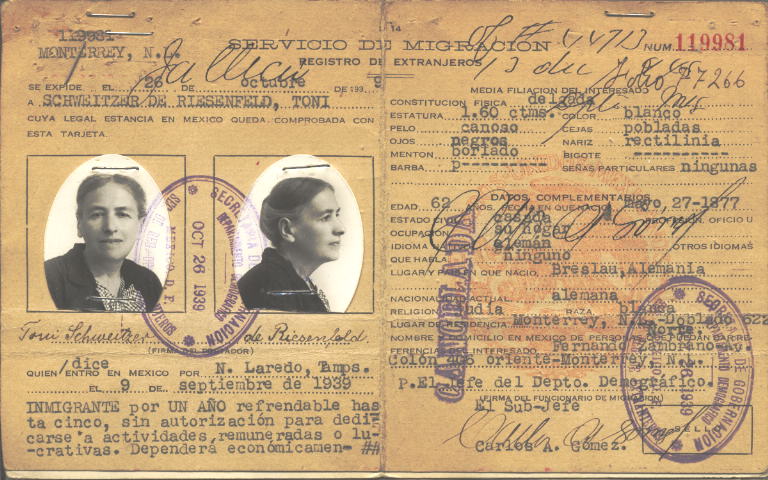 119981
MONTERREY, N.L.
SERVICIO DE MIGRACION
REGISTRO DE EXTRANJEROS
14
NUM. 119981
SE EXPIDE EL 26 DE octubre DE 193 9
A SCHWEITZER DE RIESENFELD, TONI
CUYA LEGAL ESTANCIA EN MEXICO QUEDA COMPROBADA CON
ESTA TARJETA.
SECRETARIA DE GOBERNACION
OCT 26 1939
MEXICO D.F.
Toni Schweitzer de Riesenfeld
(FIRMA DEL PORTADOR)
dice
QUIEN ENTRO EN MEXICO POR N. Laredo, Tamps.
EL 9 DE septiembre de 1939
INMIGRANTE por UN AÑO refrendable has
ta cinco, sin autorización para dedi
carse a actividades, remuneradas o lu-
crativas. Dependerá económicamen- ##
MEDIA FILIACION DEL INTERESADO
CONSTITUCION FISICA delgada
ESTATURA 1.60 ctms. COLOR blanco
PELO canoso CEJAS pobladas
OJOS negros NARIZ rectilinia
MENTON borlado BIGOTE ---------
BARBA p--------- SEÑAS PARTICULARES ningunas
DATOS COMPLEMENTARIOS
EDAD 62 AÑOS. FECHA EN QUE NACIO mayo, 27-1877
ESTADO CIVIL casada PROFESION, OFICIO U
OCUPACION su hogar
IDIOMA NATIVO alemán OTROS IDIOMAS
QUE HABLA ninguno
LUGAR Y PAIS EN QUE NACIO, Breslau, Alemania
NACIONALIDAD ACTUAL alemana
RELIGION judia RAZA blanca
LUGAR DE RESIDENCIA Monterrey, N.L. Doblado 622
Norte.
NOMBRE Y DOMICILIO EN MEXICO DE PERSONAS QUE PUEDAN DAR RE-
FERENCIA DEL INTERESADO: Fernando Zambrano Av.
Colón oriente-Monterrey, N.L.
p.El Jefe del Depto. Demográfico.
(FIRMA DEL FUNCIONARIO DE MIGRACION)
El Sub-Jefe
Carlos A. Gómez.
SELLO
SECRETARIA DE GOBERNACION
1939